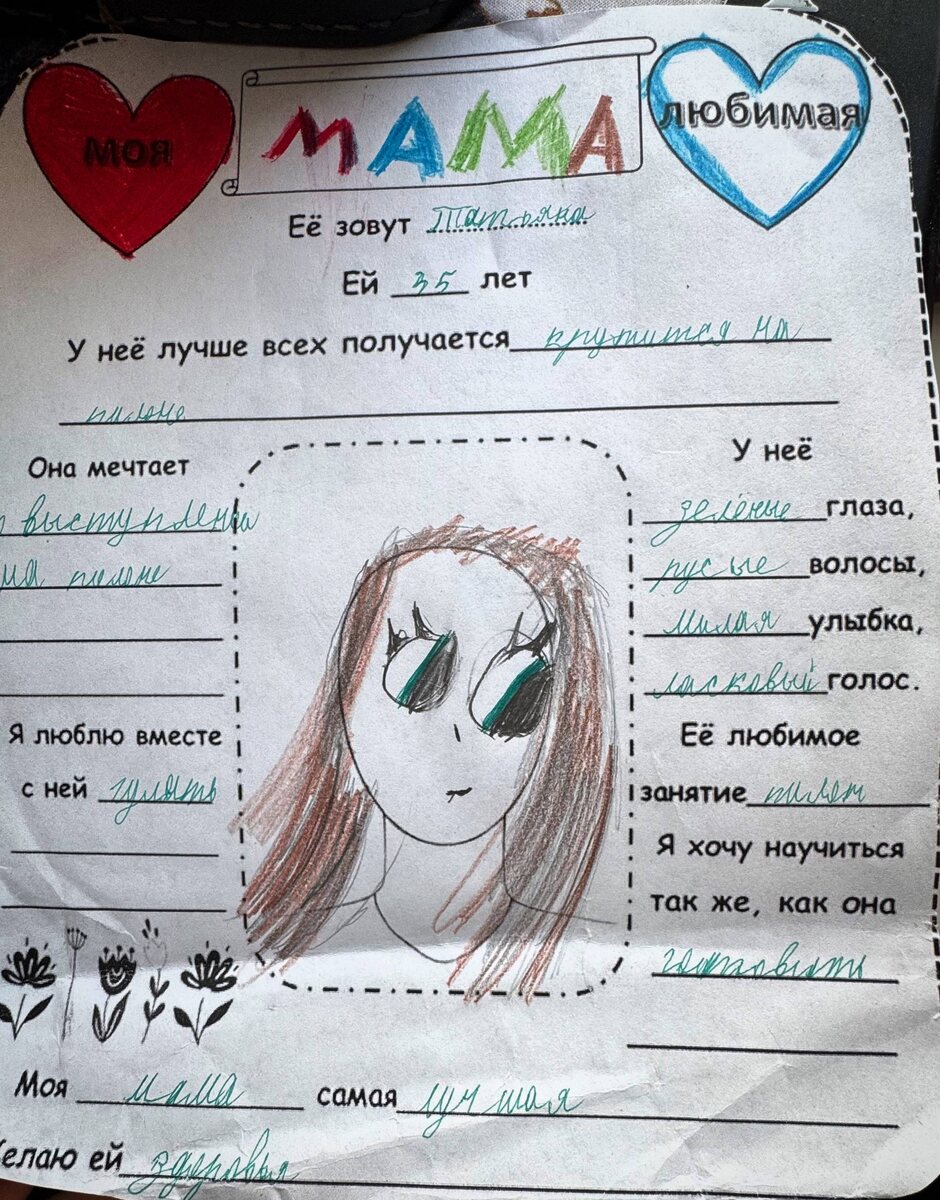 моя
МАМА
любимая
Её зовут Татьяна
Ей 35 лет
У неё лучше всех получается крутится на
пилоне
Она мечтает
выступлении
на пилоне
Я люблю вместе
с ней гулять
У неё
зелёные глаза,
русые волосы,
милая улыбка,
ласковый голос.
Её любимое
занятие пилон
Я хочу научиться
так же, как она
готовить
Моя мама самая лучшая
Желаю ей здоровья